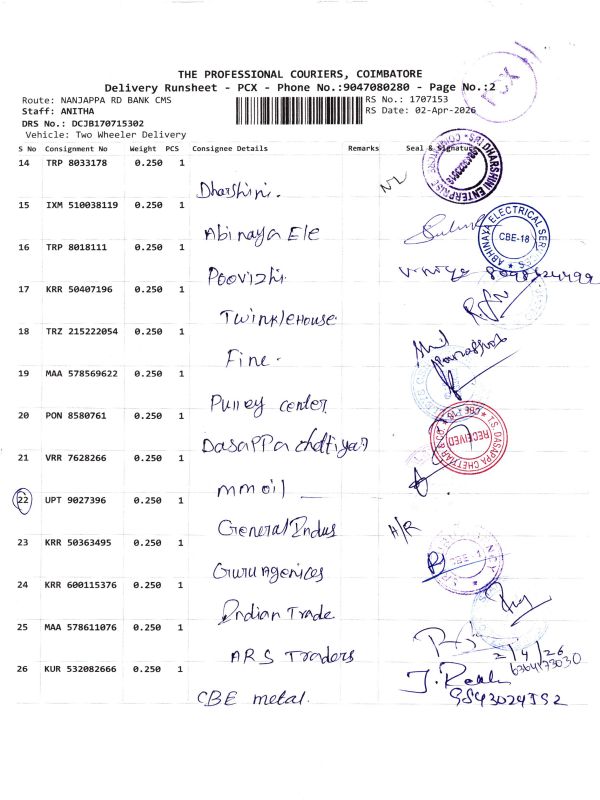 THE PROFESSIONAL COURIERS, COIMBATORE
Delivery Runsheet - PCX - Phone No.:9047080280 - Page No.:2
Route: NANJAPPA RD BANK CMS
RS No.: 1707153
Staff: ANITHA
RS Date: 02-Apr-2026
DRS No.: DCJB170715302
Vehicle: Two Wheeler Delivery
PCX
S No Consignment No Weight PCS Consignee Details Remarks Seal & Signature
14 TRP 8033178 0.250 1
Dharshini.
SRI DHARSHINI ENTERPRISE
15 IXM 510038119 0.250 1
Abinaya Ele
ABHINAYA ELECTRICAL SERVICES
CBE-18
16 TRP 8018111 0.250 1
Poovizhi
17 KRR 50407196 0.250 1
Twinklehouse
18 TRZ 215222054 0.250 1
Fine.
19 MAA 578569622 0.250 1
Pulley center
20 PON 8580761 0.250 1
Dasappa chettiyar
T.S. DASAPPA CHETTIAR & CO.
RECEIVED
21 VRR 7628266 0.250 1
mm oil
22 UPT 9027396 0.250 1
General Indus
A/R
23 KRR 50363495 0.250 1
Guru Agenices
24 KRR 600115376 0.250 1
Indian Trade
25 MAA 578611076 0.250 1
ARS Traders
2/4/26
26 KUR 532082666 0.250 1
CBE metal.